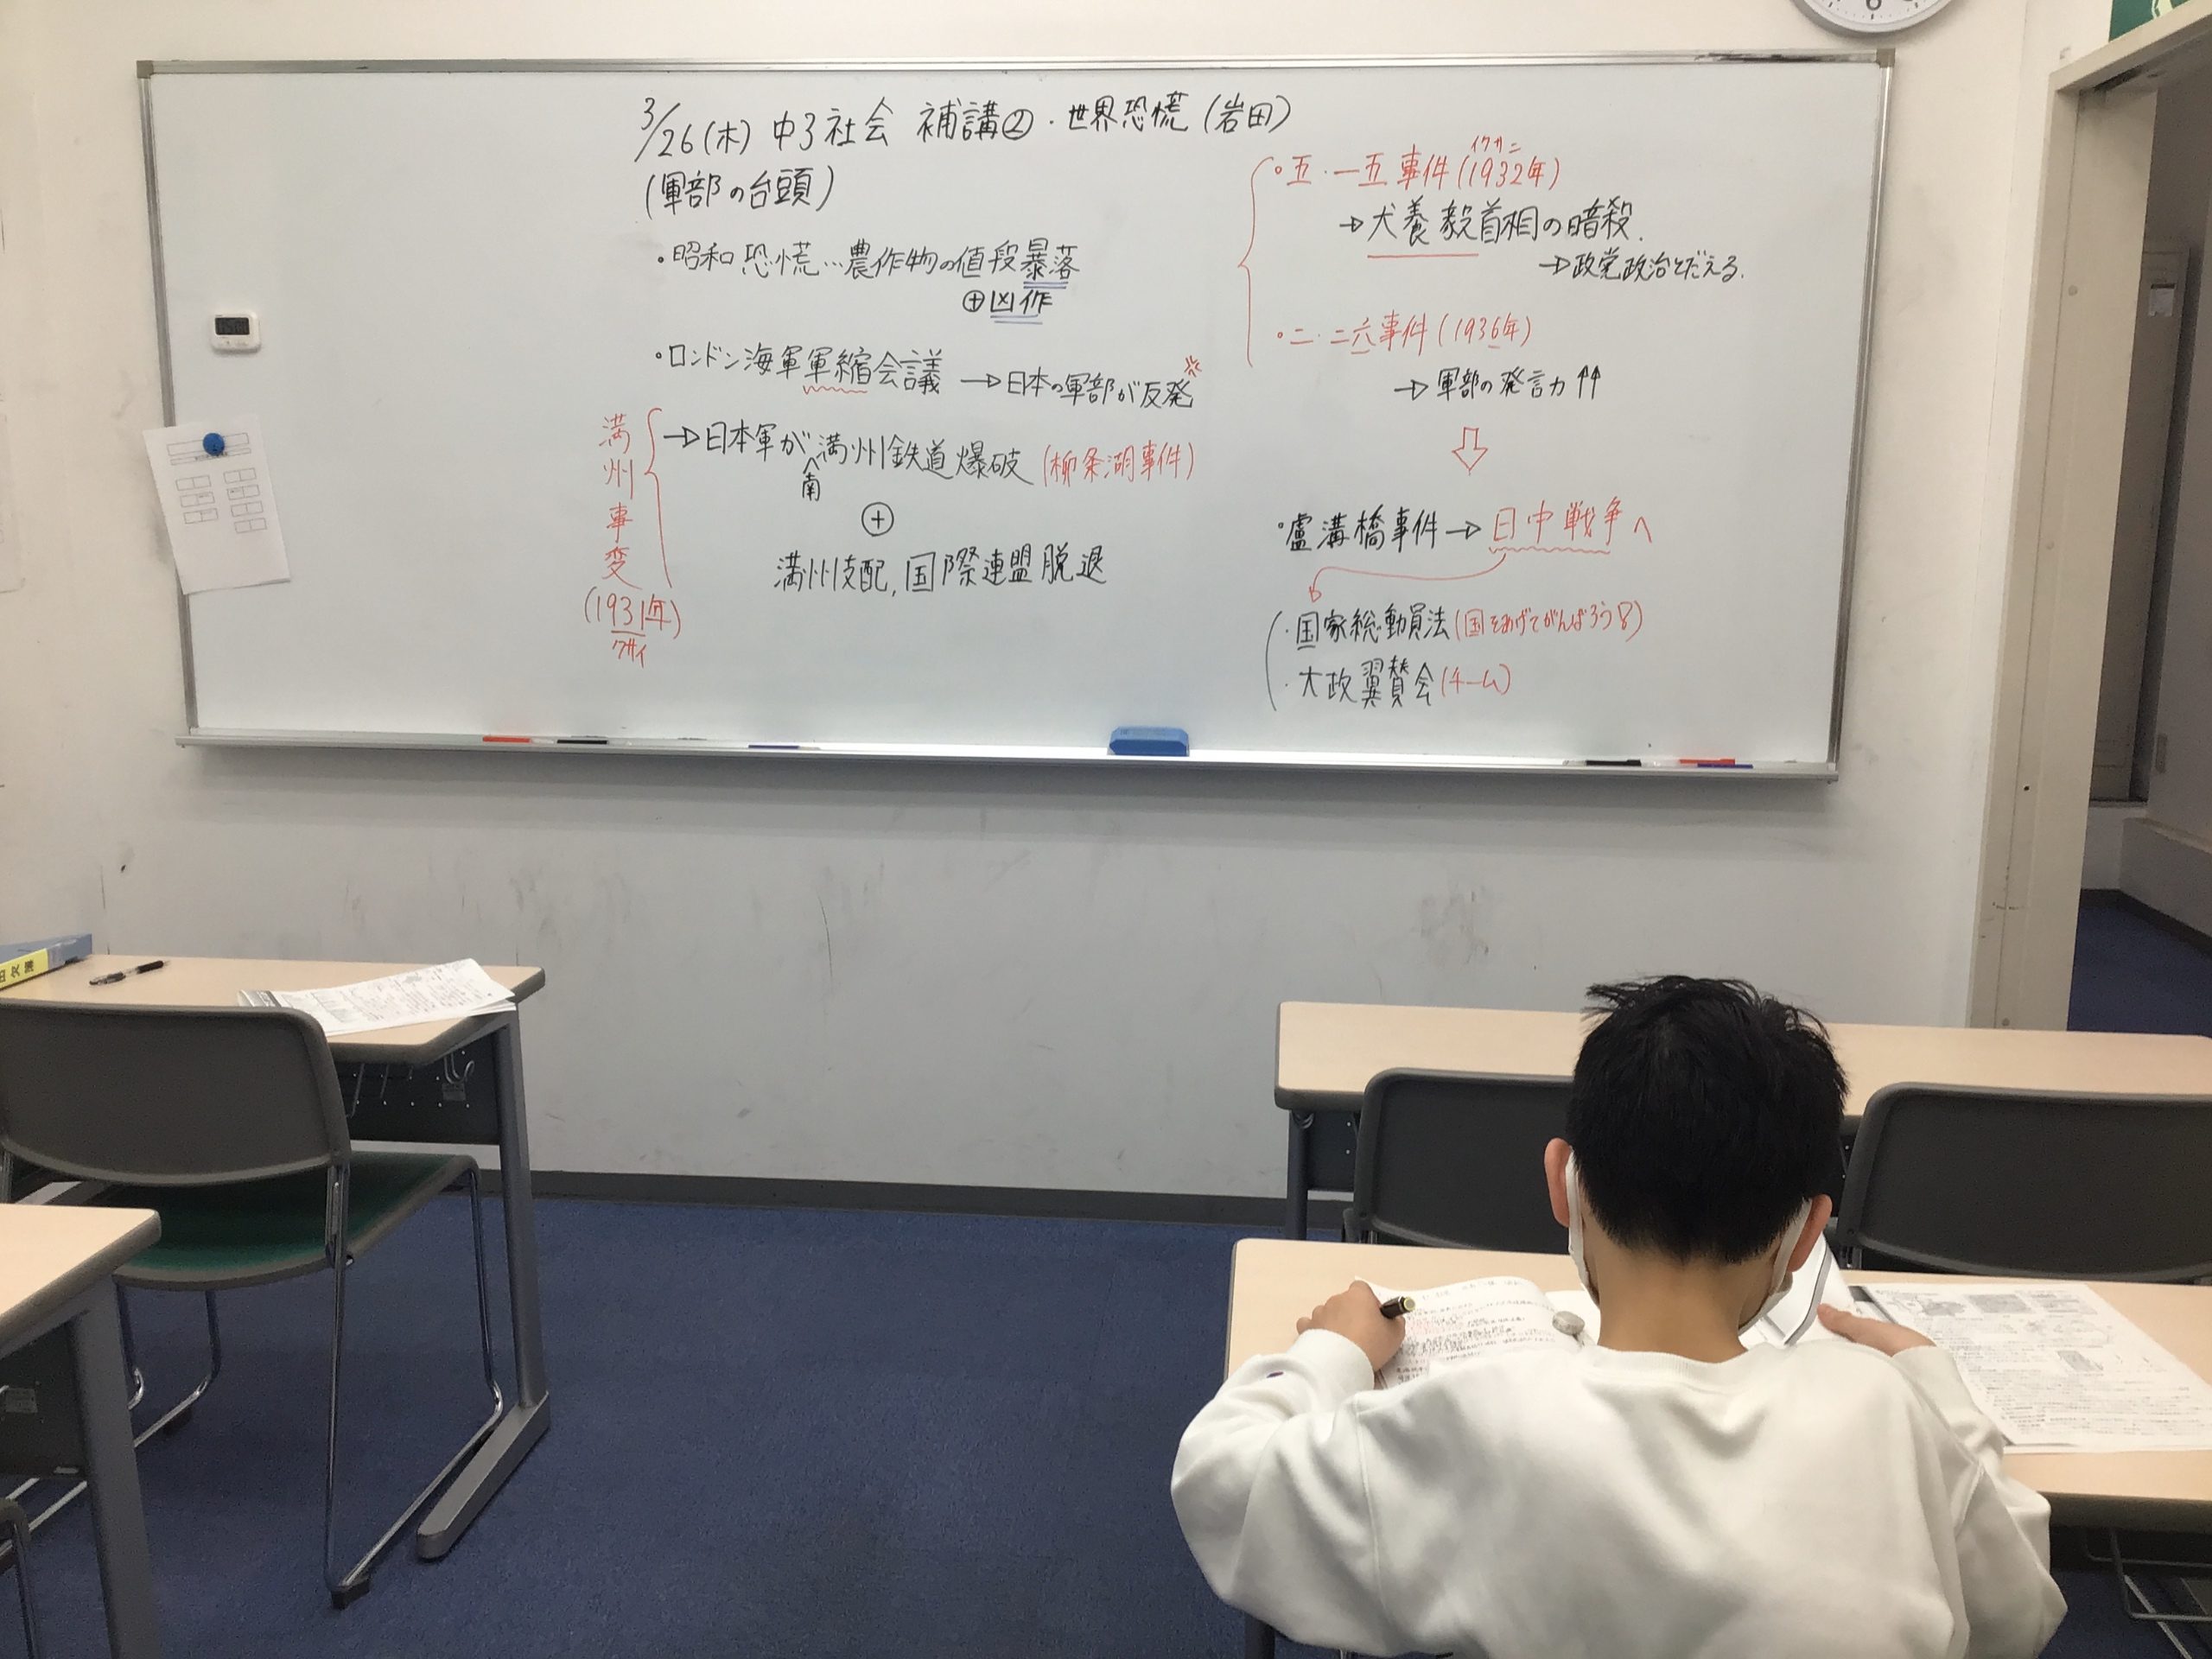 3/26(木) 中3社会 補講② ・世界恐慌 (岩田)
(軍部の台頭)
・昭和恐慌…農作物の値段暴落
⊕凶作
・ロンドン海軍軍縮会議 →日本の軍部が反発
満州事変
(1931年)
クサイ
→日本軍が満州鉄道爆破 (柳条湖事件)
南
⊕
満州支配, 国際連盟脱退
イクサニ
・五・一五事件(1932年)
→犬養毅首相の暗殺.
→政党政治とだえる.
・二・二六事件(1936年)
→軍部の発言力↑↑
⇩
・盧溝橋事件→日中戦争へ
・国家総動員法(国をあげてがんばろう!)
・大政翼賛会(チーム)